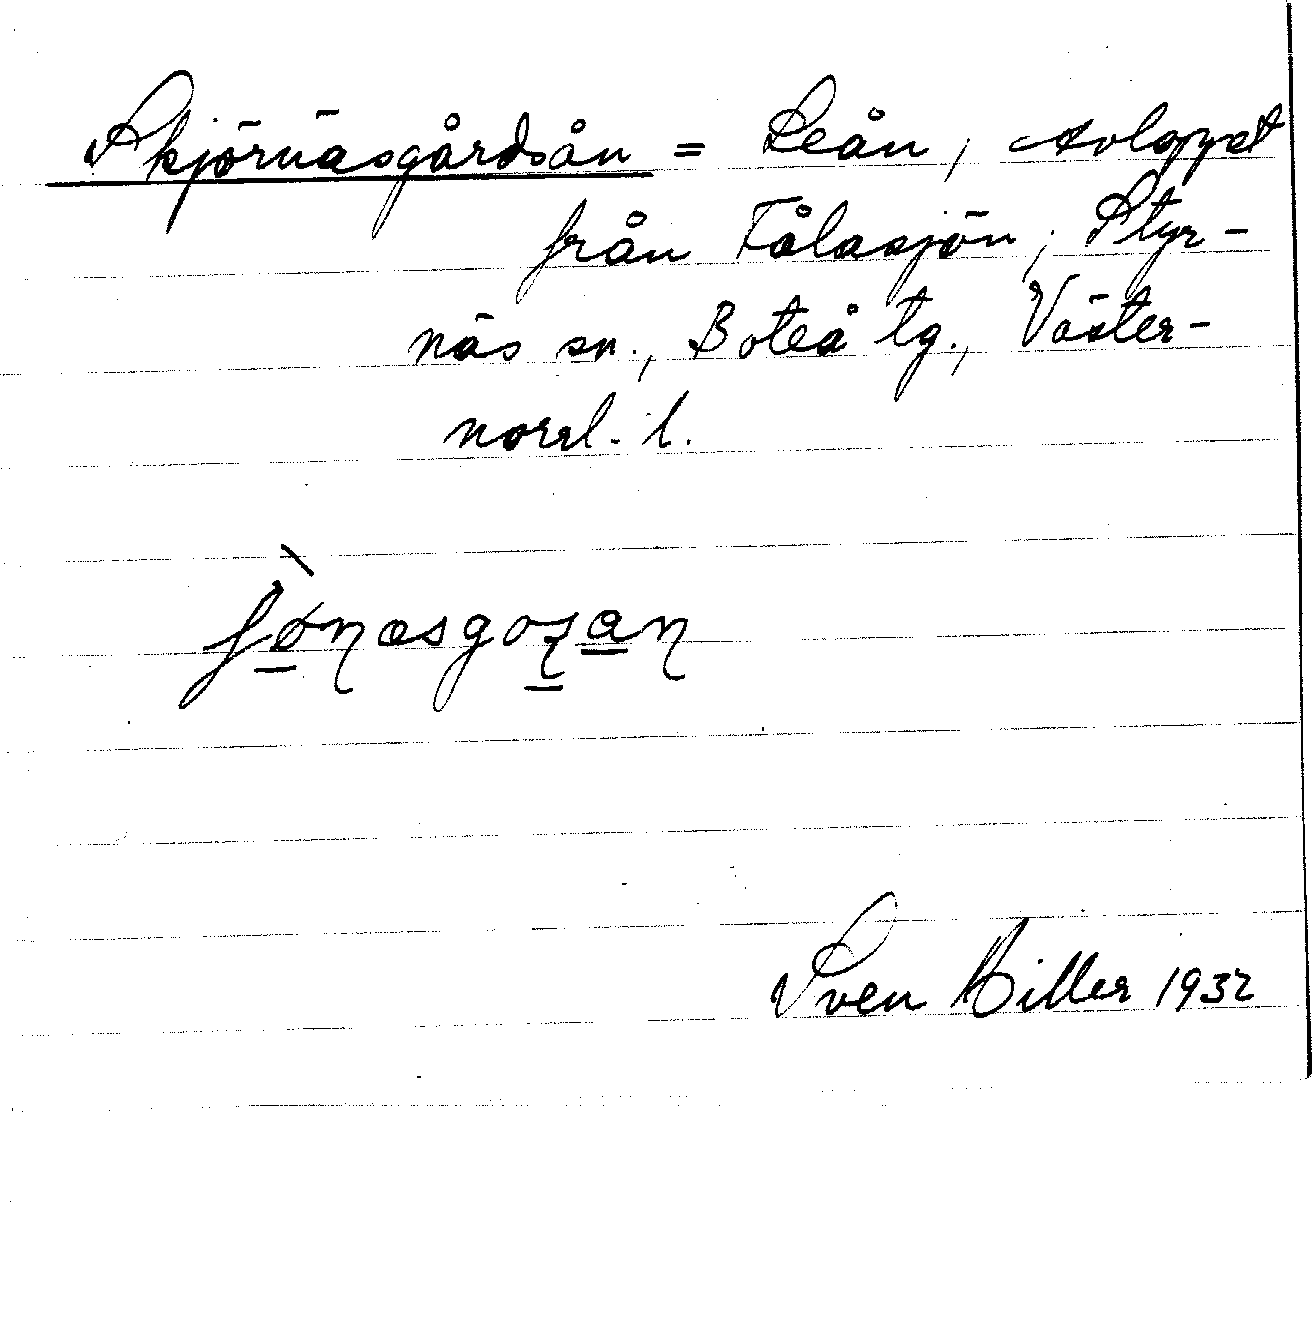 Skjörnäsgårdsån = Leån, avlopp
från Fålasjön, Styr-
näs sn., Boteå tg., Väster-
norrl. l.
Sven Hiller 1932